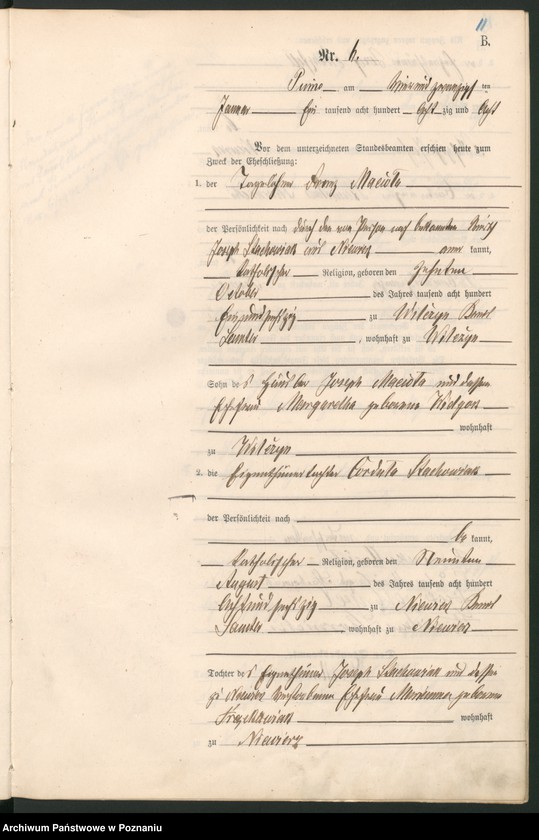 11
B.
Nr. 6.
Pinne am vierundzwanzigsten
Januar Ein tausend acht hundert achtzig und acht
Vor dem unterzeichneten Standesbeamten erschien heute zum
Zweck der Eheschließung:
1. der Tagelöhner Franz Maciota
der Persönlichkeit nach durch den von Person bekannten Wirth
Joseph Stachowiak aus Niewierz anerkannt,
katholischer Religion, geboren den zehnten
October des Jahres tausend acht hundert
Einundsechzig zu Wilczyn
Samter, wohnhaft zu Wilczyn
Sohn des Häusler Joseph Maciota und dessen
Ehefrau Margaretha geborene
wohnhaft
zu Wilczyn
2. die Eigenthümertochter Cordula Stachowiak
der Persönlichkeit nach
bekannt,
katholischer Religion, geboren den Neunten
August des Jahres tausend acht hundert
achtundsechzig zu Niewierz
Samter wohnhaft zu Niewierz
Tochter des Eigenthümer Joseph Stachowiak und dessen
zu Niewierz verstorbenen Ehefrau Marianna geborene
wohnhaft
zu Niewierz
Archiwum Państwowe w Poznaniu